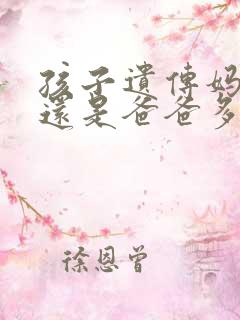 孩子遺傳媽
還是爸爸多
徐恩曾